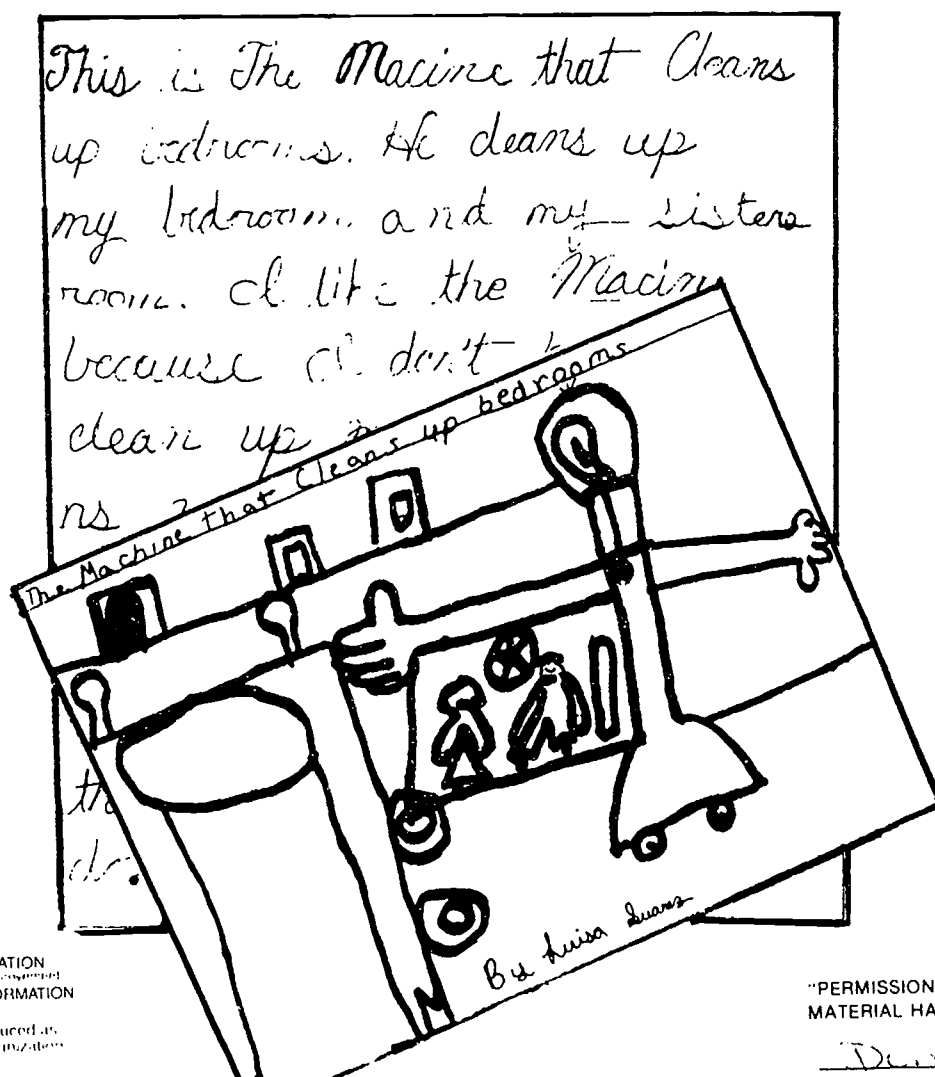 This is The Macine that Cleans
up bedrooms. He cleans up
my bedroom and my sisters
room. I like the Macine
because I don't
clean up
ns
The Machine that Cleans up bedrooms
th
do.
By Luisa Suarez
ATION
ORMATION
uced as
"PERMISSION
MATERIAL HA